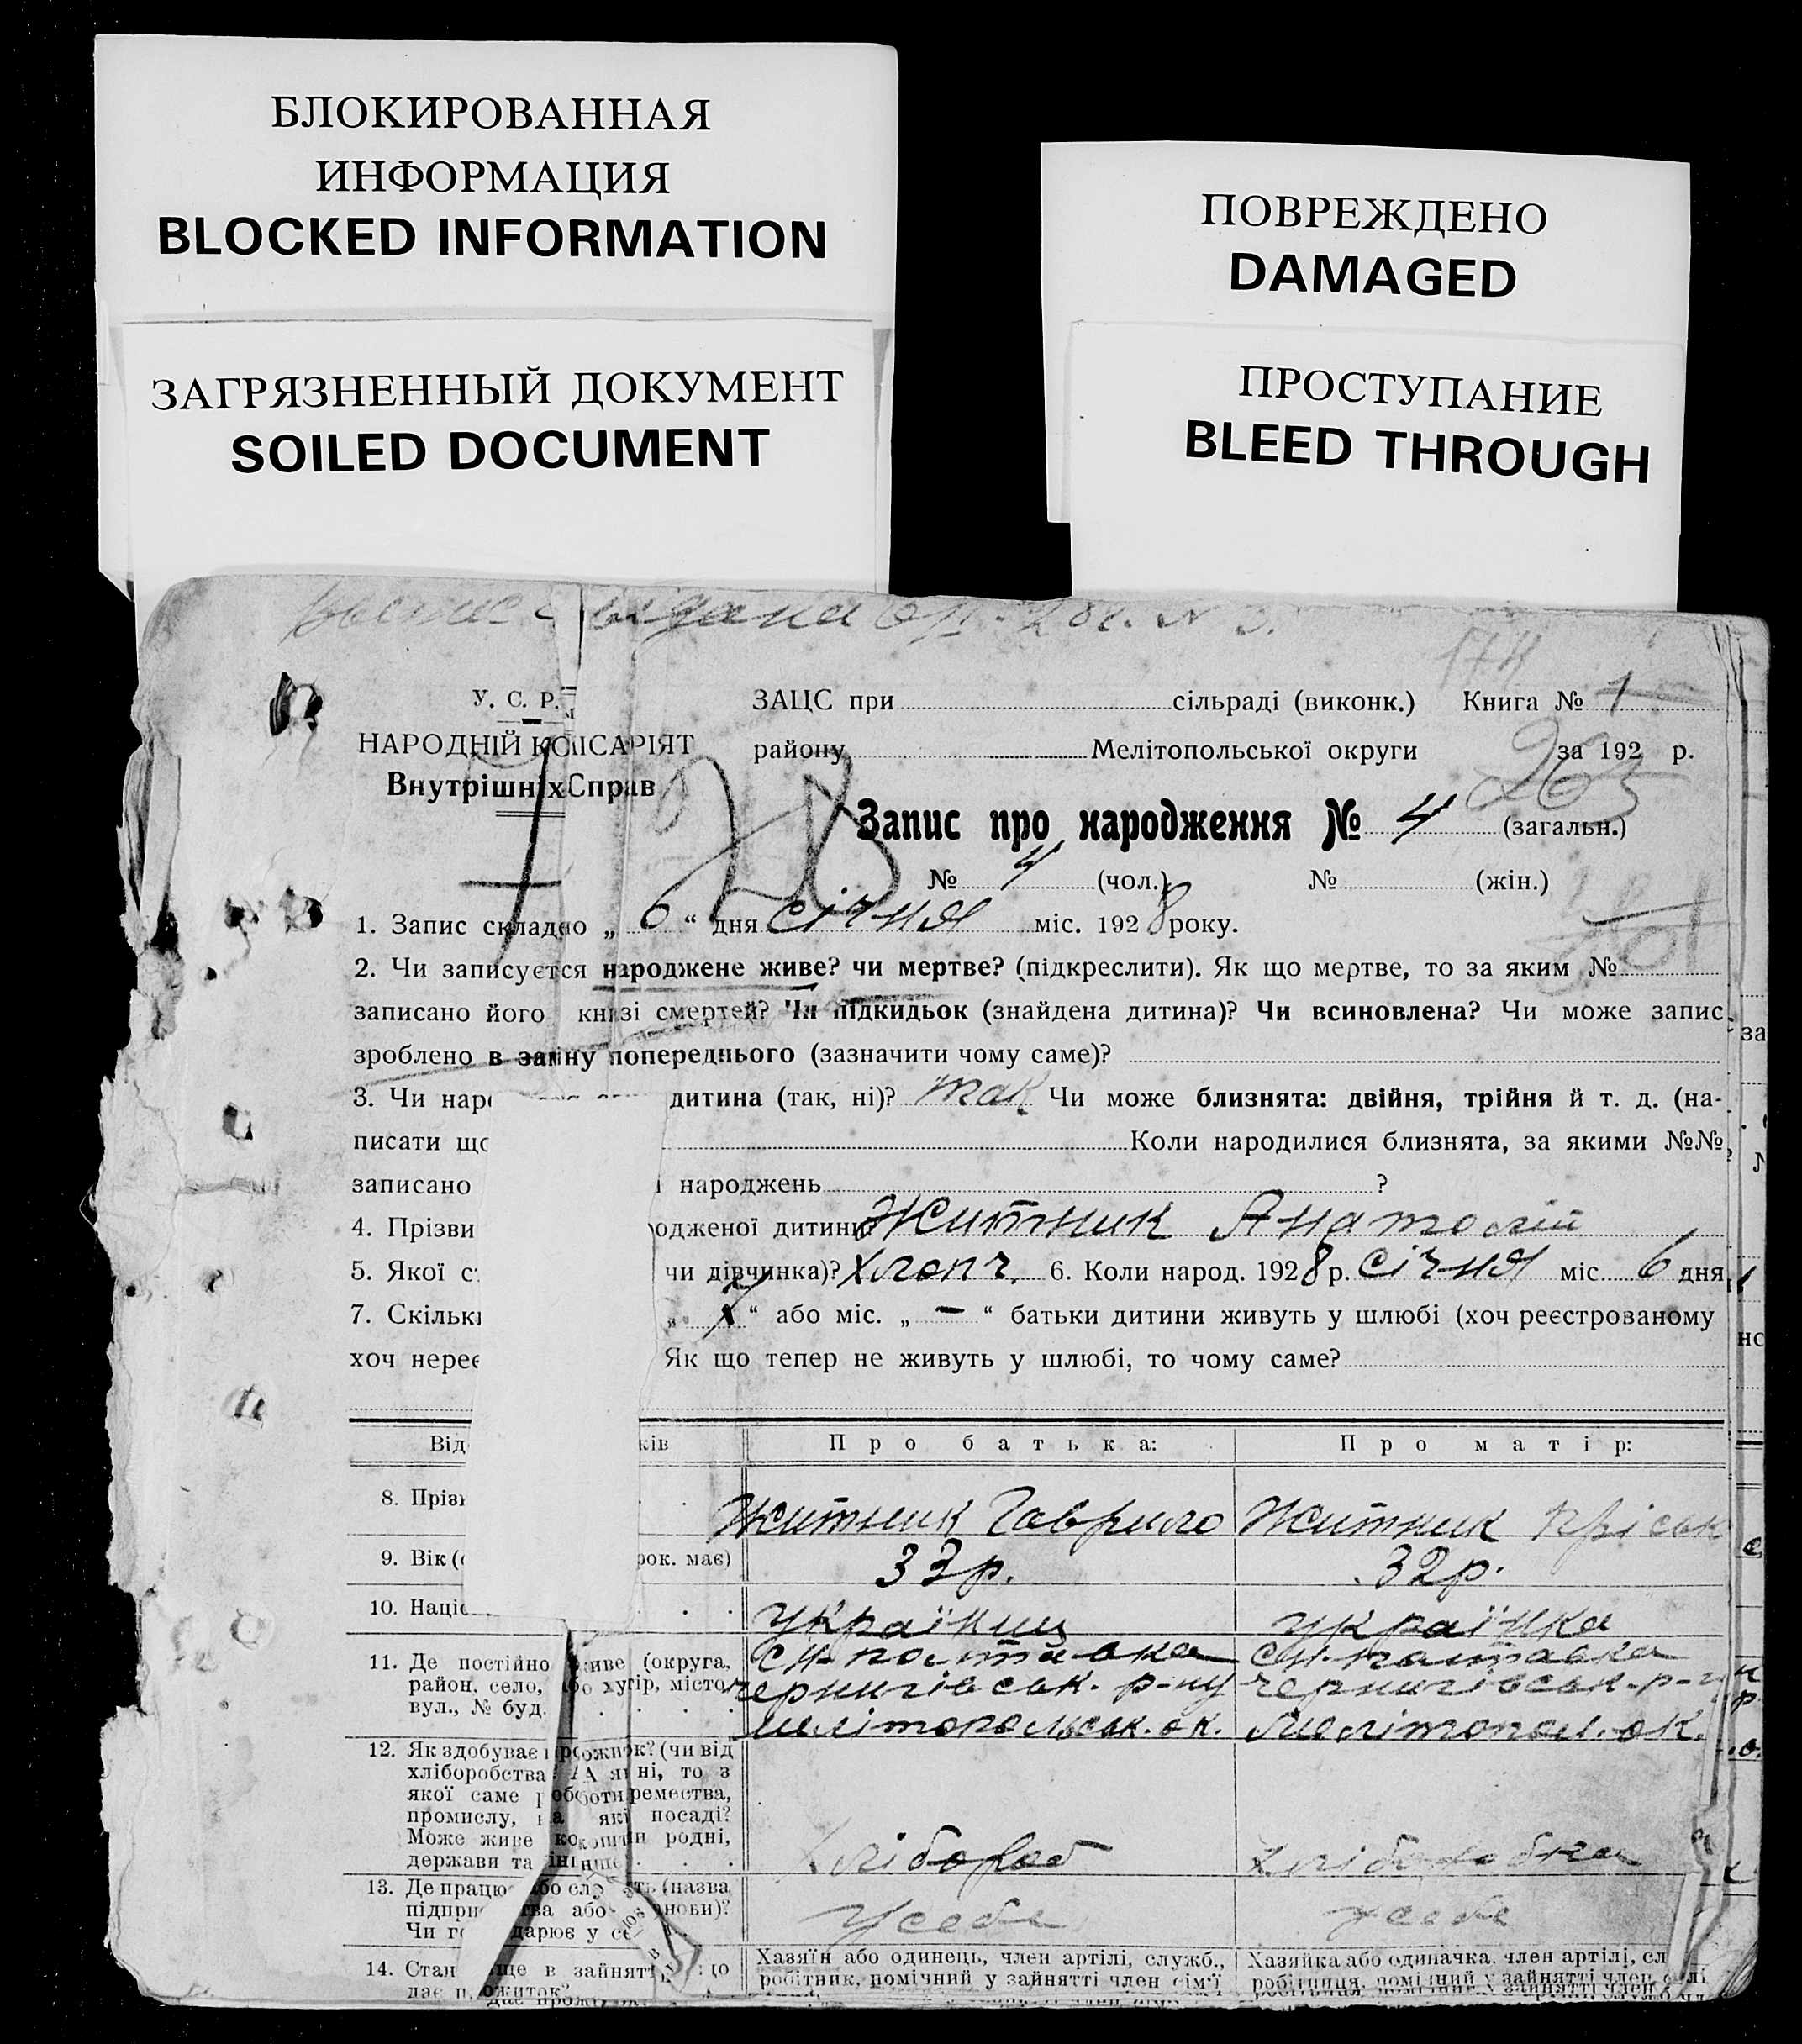 БЛОКИРОВАННАЯ
ИНФОРМАЦИЯ
BLOCKED INFORMATION
ЗАГРЯЗНЕННЫЙ ДОКУМЕНТ
SOILED DOCUMENT
ПОВРЕЖДЕНО
DAMAGED
ПРОСТУПАНИЕ
BLEED THROUGH
У. С. Р. Р.
НАРОДНІЙ КОМІСАРІЯТ
Внутрішніх Справ
ЗАЦС при сільраді (виконк.) Книга № 1
району Мелітопольської округи за 192 р.
28
263
Запис про народження № 4 (загальн.)
№ 4 (чол.) № (жін.)
1. Запис складено „ 6 “ дня січня міс. 1928 року.
2. Чи записується народжене живе? чи мертве? (підкреслити). Як що мертве, то за яким №
записано його книзі смертей? Чи підкидьок (знайдена дитина)? Чи всиновлена? Чи може запис
зроблено в заміну попереднього (зазначити чому саме)?
3. Чи наро дитина (так, ні)? так Чи може близнята: двійня, трійня й т. д. (на-
писати що Коли народилися близнята, за якими №№
записано народжень ?
4. Прізви одженої дитини? Житник Анатолій
5. Якої ст чи дівчинка)? Хлопч. 6. Коли народ. 1928 р. січня міс. 6 дня
7. Скільки „ “ або міс. „ — “ батьки дитини живуть у шлюбі (хоч реєстрованому
хоч нереє Як що тепер не живуть у шлюбі, то чому саме?
Від ків Про батька: Про матір:
8. Прізв Житник Гаврило Житник Пріськ
9. Вік ( рок. має) 33 р. 32 р.
10. Націо Українец Українка
11. Де постійно живе (округа,
район, село, або хутір, місто,
вул., № буд.
черниговськ. р-ну чернигівськ. р-н
мелітопольськ. ок. Мелітопол. ок.
12. Як здобуває прожиток? (чи від
хліборобства? А як ні, то з
якої саме роботи ремества,
промислу, на які посаді?
Може живе коштом родні,
держави та інше
Хлібороб Хліборобка
13. Де працює або служить (назва
підприємства або установи)?
Чи господарює у себе
У себе у себе
14. Становище в зайнятті, що
дає прожиток?
Хазяїн або одинець, член артілі, служб., Хазяйка або одиначка, член артілі, сл
робітник, помічний у зайнятті член сім'ї робітниця, помічний у зайнятті член